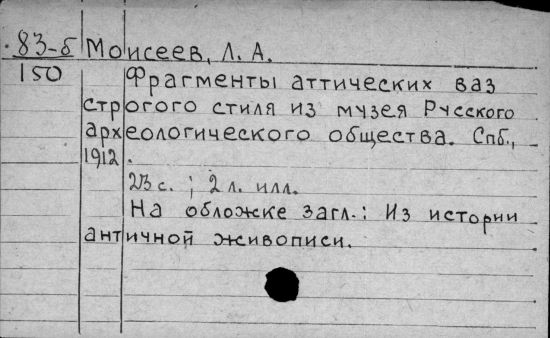 83-б Моисеев, Л. А.
150
Фрагменты аттических ваз
строгого стиля из музея Русского
археологического общества. Спб.,
1912.
23 с. ; 2 л. илл.
На обложке загл.: Из истории
античной живописи.